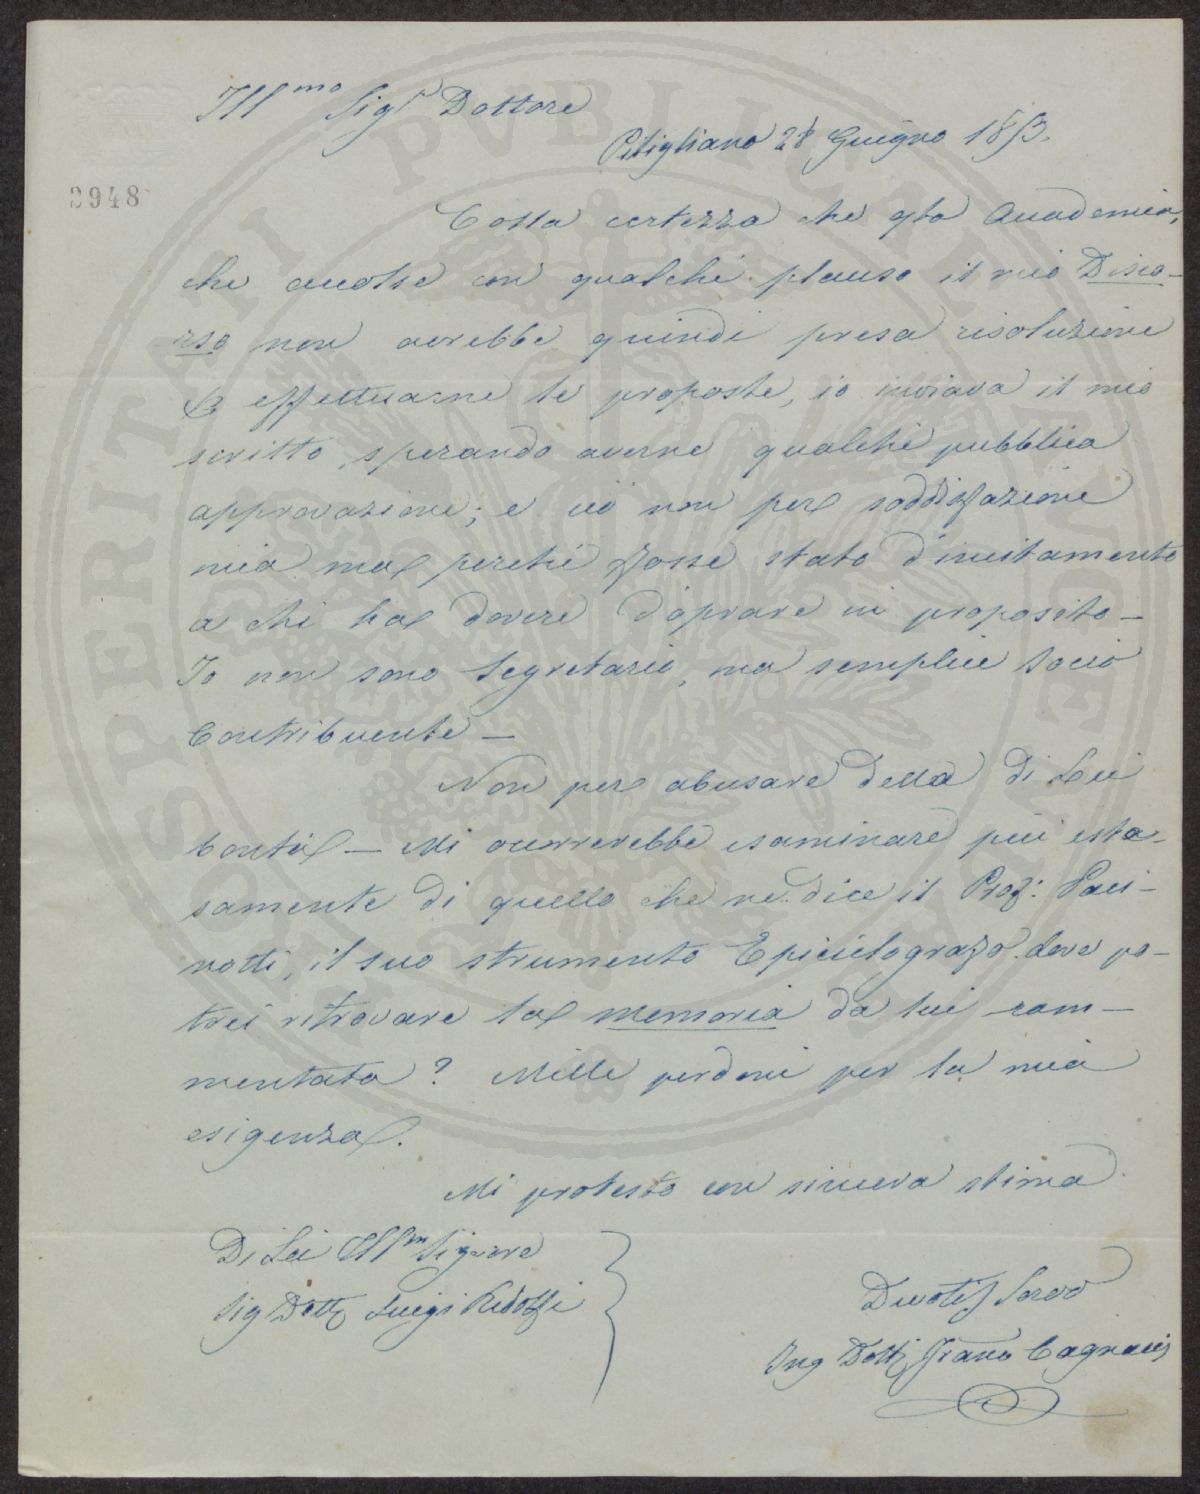 Ill.mo Sig.r Dottore
Pitigliano 28 Giugno 1853.
2948
Colla certezza che q.ta Accademia,
che accolse con qualche plauso il mio Disco-
rso non avrebbe quindi presa risoluzione
effettuarne le proposte, io inviava il mio
scritto, sperando averne qualche pubblica
approvazione; e ciò non per soddisfazione
mia ma perché fosse stato d'incitamento
a chi ha dovere d'oprare in proposito —
Io non sono Segretario, ma semplice Socio
Contribuente —
Non per abusare della di Lei
bontà — Mi occorrerebbe esaminare più esta-
samente di quello che ne dice il Prof: Paci-
notti, il suo strumento Epiciclografo. dove po-
trei ritrovare la memoria da lui ram-
mentata? Mille perdoni per la mia
esigenza.
Mi protesto con sincera stima
Di Lei Ill.m Signore
Sig Dott Luigi Ridolfi
Devotis Servo
Ing Dott Franco Cagnacci
PROSPERITATI PVBLICAE AVGENDAE